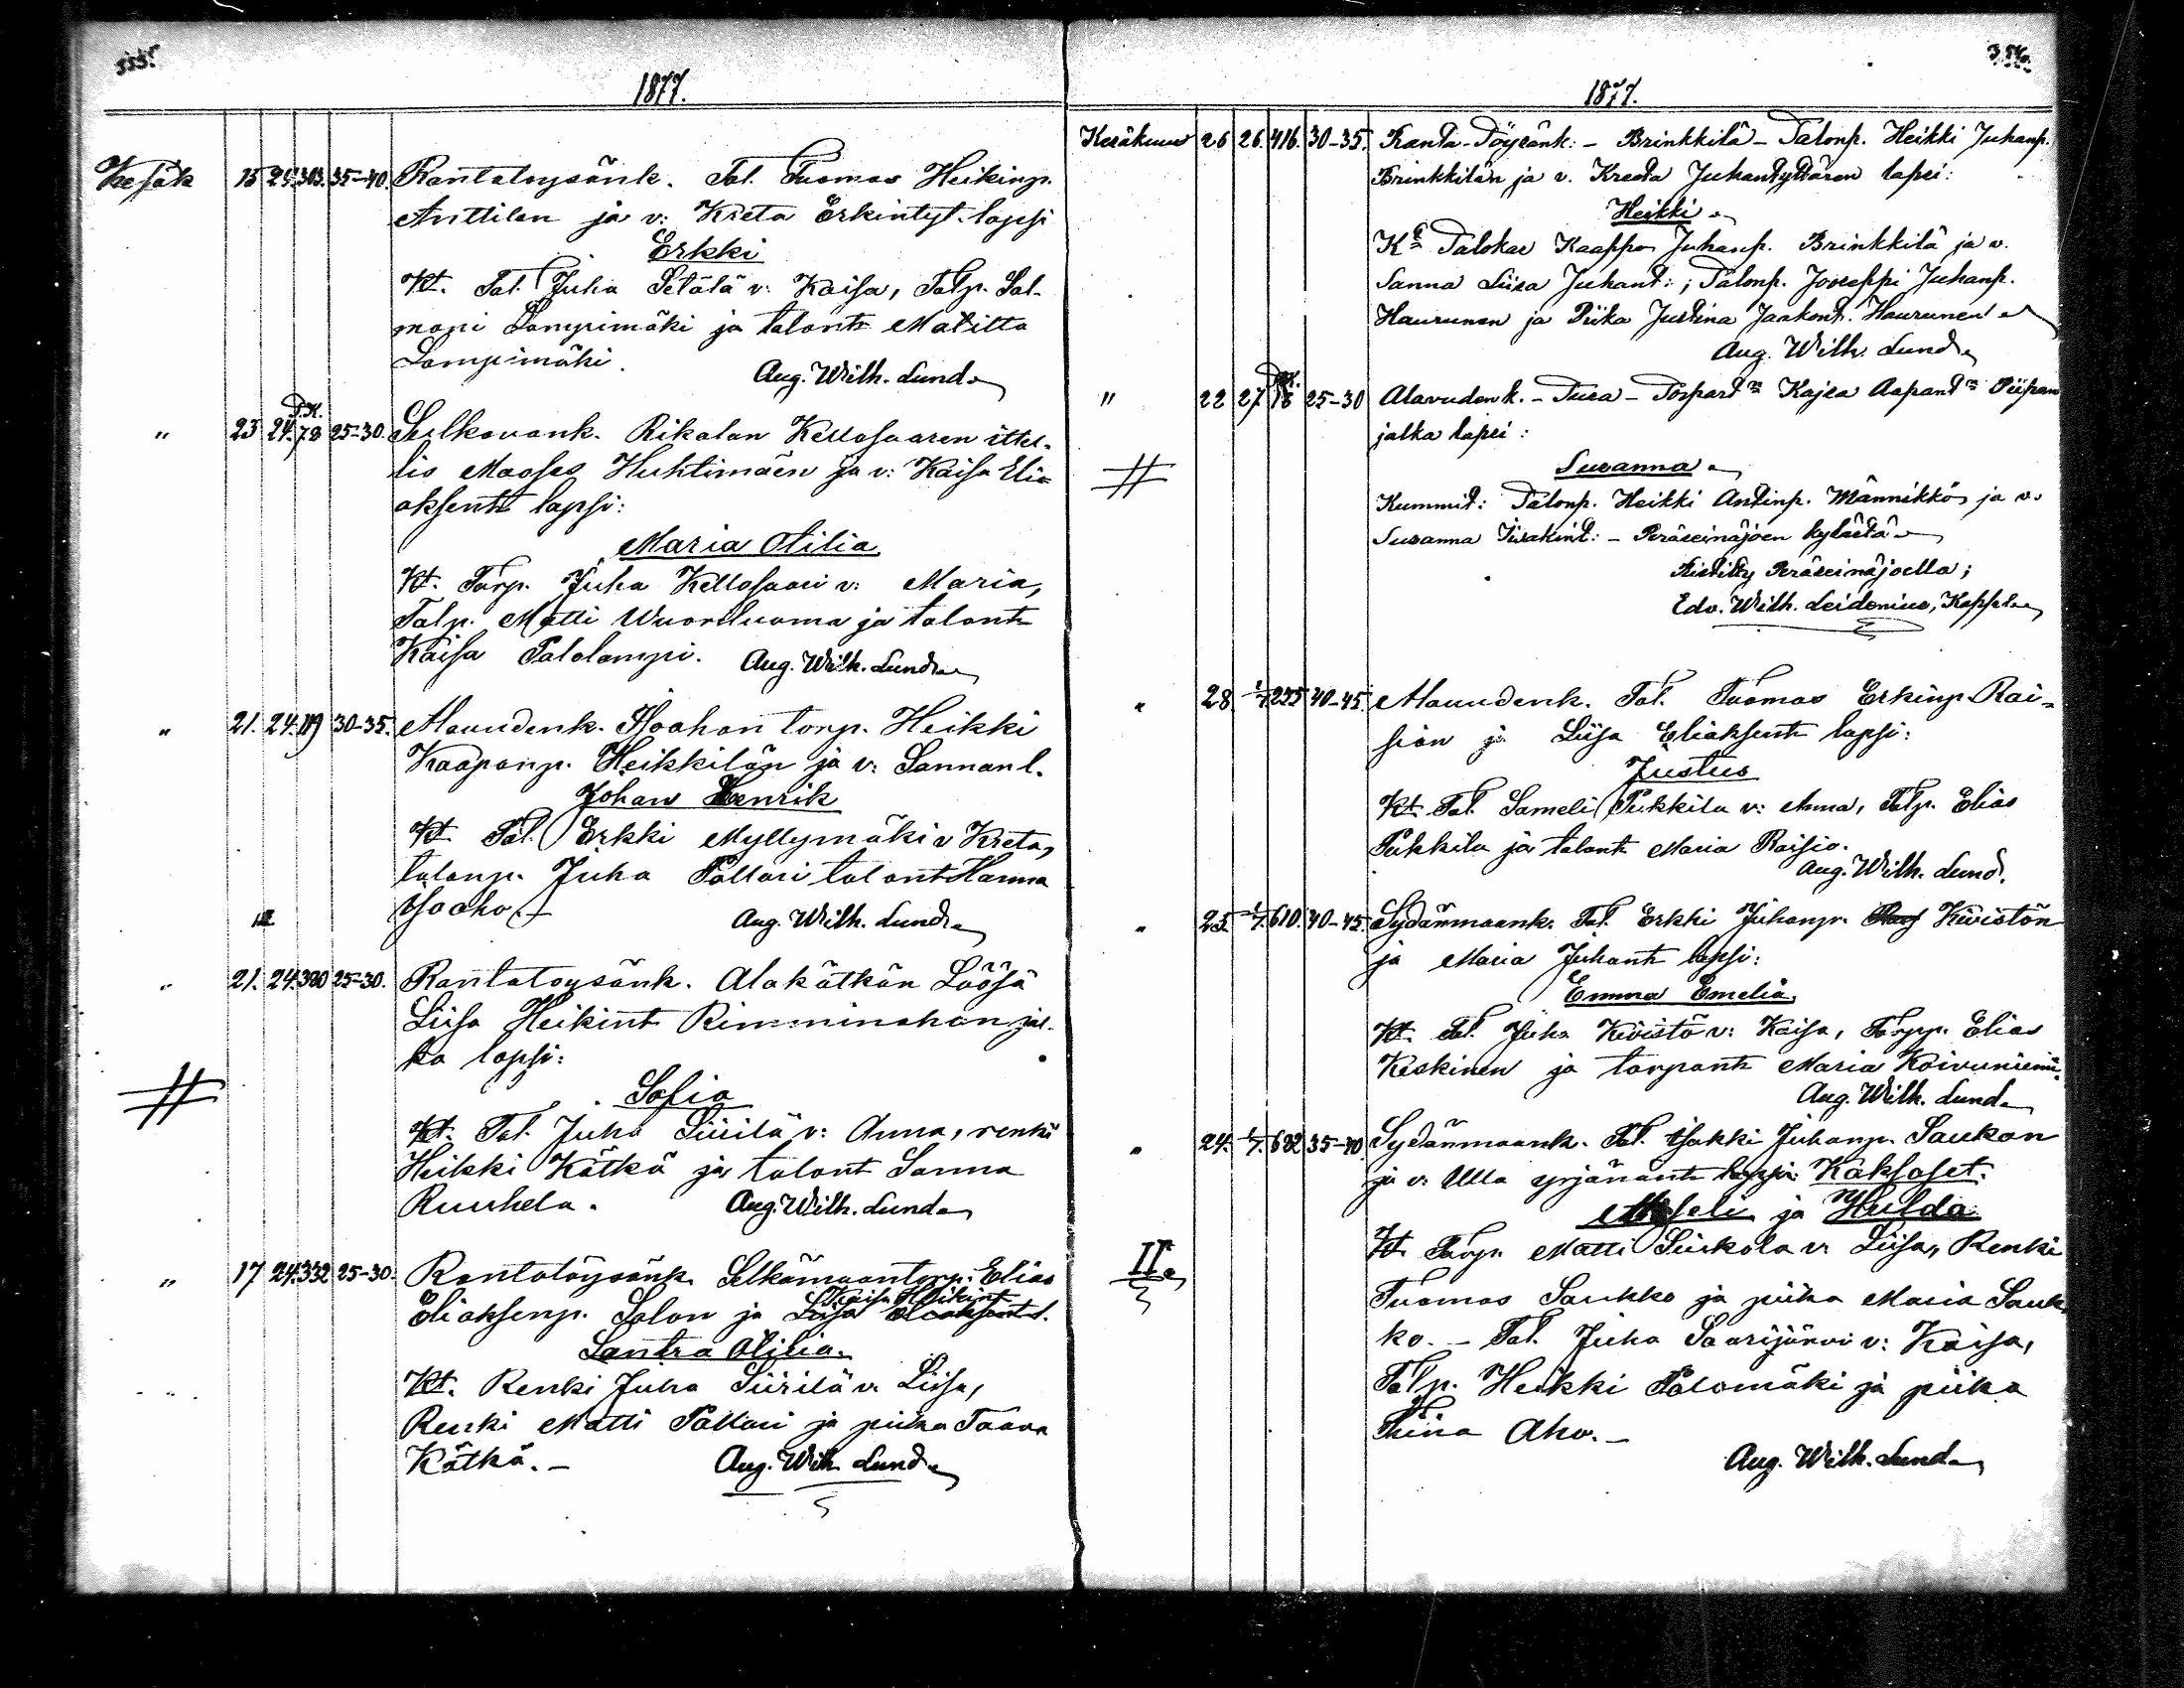 355.
1877.
Kesäk 15 24. 303. 35-40 Rantatoysänk. Tal. Tuomas Heikinp.
Anttilan ja v: Kreta Erkintyt. lapsi
Erkki
Kt. Tal. Juha Setälä v: Kaisa, Talp. Sal-
moni Lampimäki ja talont Matilta
Lampimäki.
Aug. Wilh. Lund
P.K.
" 23 24. 78 25-30. Sulkavank. Rikalan Kellosaaren ittel-
lis Mooses Huhtimäen ja v: Kaisa Eli-
aksent lapsi:
Maria Otilia
Kt. Torp. Juha Kellosaari v: Maria,
Talp. Matti Wuoriluoma ja talont
Kaisa Palolampi. Aug. Wilh. Lund
" 21. 24. 119 30-35. Alavudenk. Isoahon torp. Heikki
Kaapanp. Heikkilän ja v: Sannan l.
Johan Henrik
Kt Tal. Erkki Myllymäki v Kreta,
talonp. Juha Pollari talont Hanna
Isoaho.-
Aug. Wilh. Lund
" 21. 24. 380 25-30. Rantatoysänk. Alakätkän Löösä
Liisa Heikint Rimminahon jal-
ka lapsi:
Sofia
Kt. Tal. Juha Siirilä v: Anna, renki
Heikki Kätkä ja talont Sanna
Ruuhela. Aug. Wilh. Lund
" 17 24. 332 25-30. Rantatöysänk. Selkämaantorp. Elias
Kaisa Heikint
Eliaksenp. Salon ja Liisa Eliaksent l.
Santra Olivia.
Kt. Renki Juha Siirilä v. Liisa,
Renki Matti Pollari ja piika Taava
Kätkä.- Aug. Wilh. Lund
356.
1877.
Kesäkuu 26 26. 416. 30-35. Ranta-Töysänk: - Brinkkilä - Talonp. Heikki Juhanp.
Brinkkilän ja v. Kreeta Juhantyttären lapsi:
Heikki
Kt Talokas Kaappo Juhanp. Brinkkilä ja v.
Sanna Liisa Juhant: ; Talonp. Jooseppi Juhanp.
Haurunen ja Piika Justina Jaakont. Haurunen
Aug. Wilh. Lund
P.K.
" 22 27. 18 25-30 Alavudenk. - Tusa - Torpart Kajsa Aapant Piipan
jalka lapsi:
Susanna
Kummit: Talonp. Heikki Antinp. Männikkö ja v.
Susanna Iisakint: - Peräseinäjoen kylästä
Ristitty Peräseinäjoella;
Edv. Wilh. Leidenius, Kappal.
" 28 1/7 255 40-45. Alavudenk. Tal. Tuomas Erkinp. Rai-
sion ja Liisa Eliaksent lapsi:
Justus
Kt. Tal. Sameli Pukkila v: Anna, Talp. Elias
Pukkila ja talont Maria Raisio.
Aug. Wilh. Lund.
" 25. 1/7. 610. 40-45. Sydänmaank. Tal. Erkki Juhanp. Kivistön
ja Maria Juhant lapsi:
Emma Emelia
Kt. Tal. Juha Kivistö v: Kaisa, Torpp. Elias
Keskinen ja torpant Maria Koivuniemi.
Aug. Wilh. Lund
" 24. 1/7. 682 35-40 Sydänmaank. Tal. Isakki Juhanp. Saukon
ja v: Ulla yrjänänt lapsi: Kaksoset.
Miseli ja Hulda
II. Kt. Torp. Matti Siiskola v: Liisa, Renki
Tuomas Saukko ja piika Maria Sauk
ko. - Tal. Juha Saarijärvi v: Kaisa,
Talp. Heikki Palomäki ja piika
Tiina Aho.-
Aug. Wilh. Lund